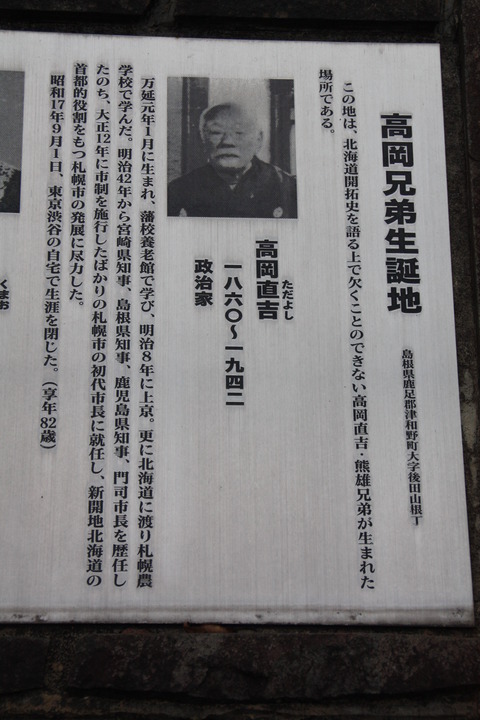 高岡兄弟生誕地
島根県鹿足郡津和野町大字後田山根丁
この地は、北海道開拓史を語る上で欠くことのできない高岡直吉・熊雄兄弟が生まれた
場所である。
ただよし
高岡直吉
一八六〇〜一九四二
政治家
万延元年1月に生まれ、藩校養老館で学び、明治8年に上京。更に北海道に渡り札幌農
学校で学んだ。明治42年から宮崎県知事、島根県知事、鹿児島県知事、門司市長を歴任し
たのち、大正12年に市制を施行したばかりの札幌市の初代市長に就任し、新開地北海道の
首都的役割をもつ札幌市の発展に尽力した。
昭和17年9月1日、東京渋谷の自宅で生涯を閉じた。(享年82歳)
くまお